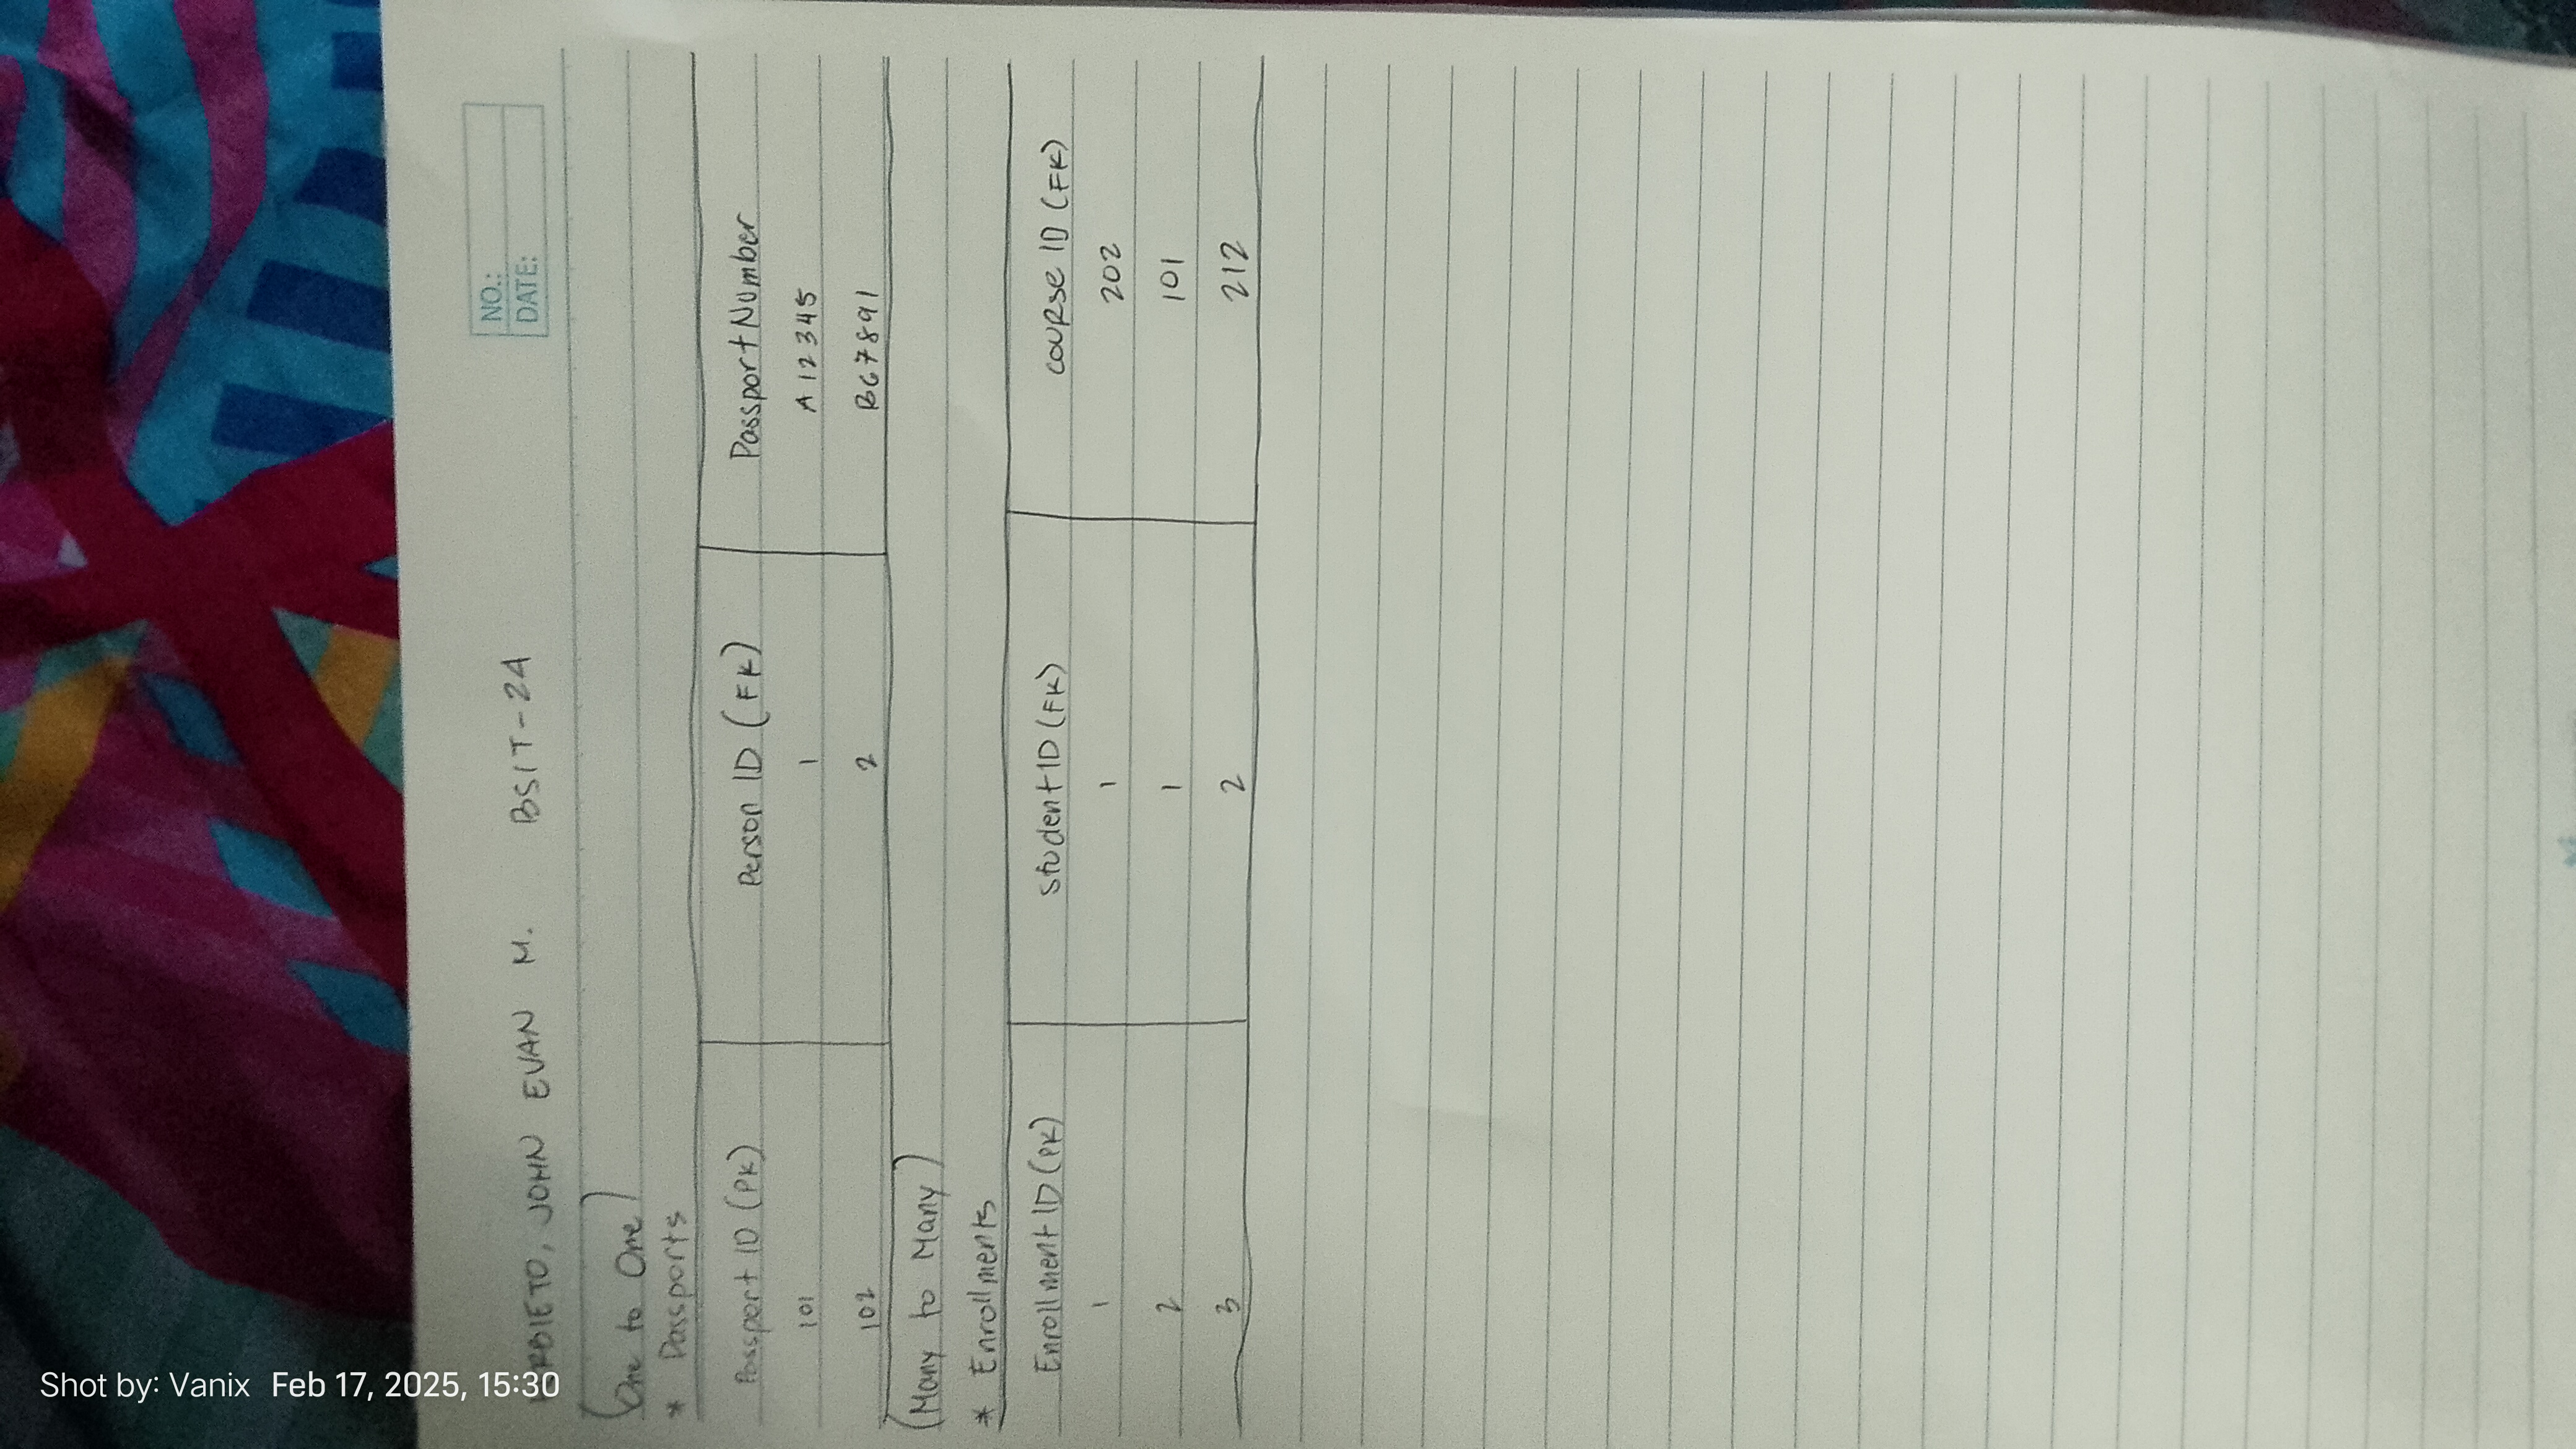 NO.:
DATE:
JOHN EVAN M. BSIT-24
(One to One)
* Passports
Passport ID (PK) Person ID (FK) Passport Number
101 1 A12345
102 2 B67891
(Many to Many)
* Enrollments
Enrollment ID (PK) Student ID (FK) Course ID (FK)
1 1 202
2 1 101
3 2 212
Shot by: Vanix Feb 17, 2025, 15:30